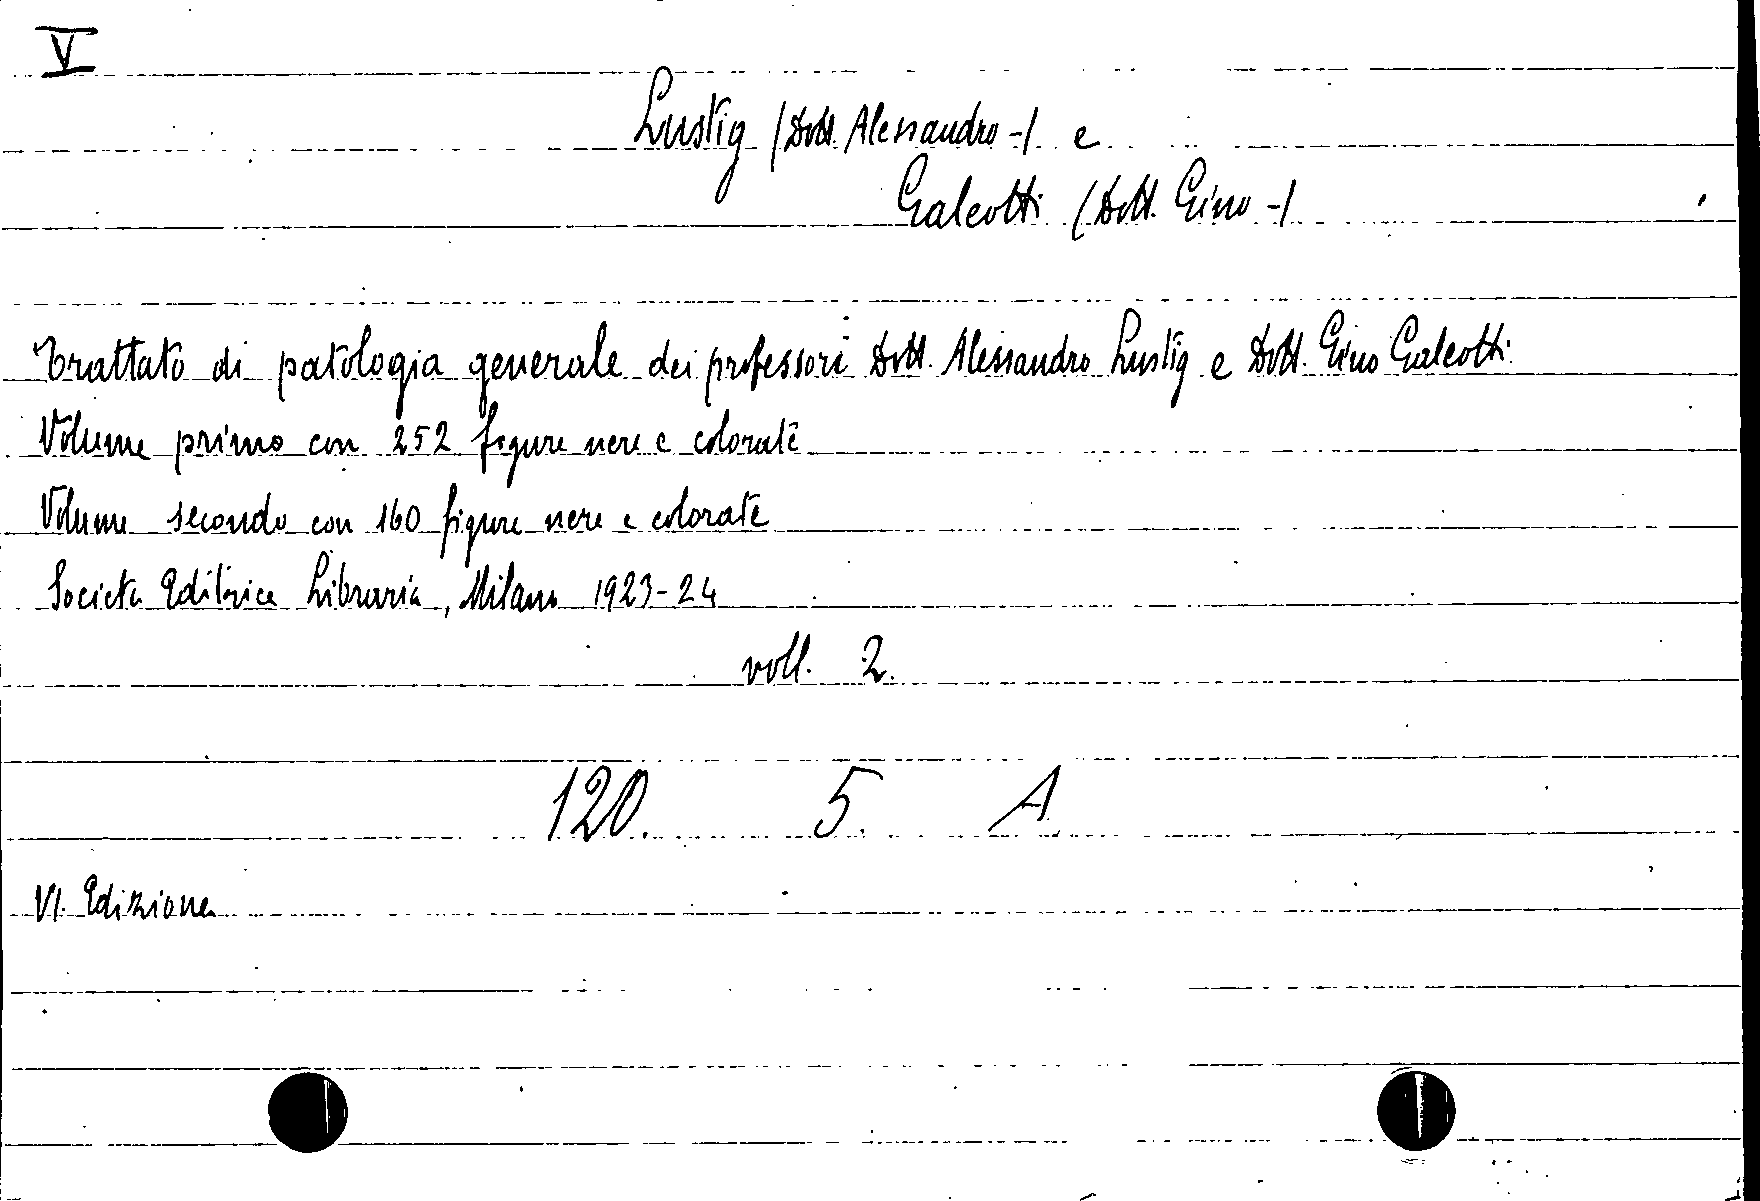 V
Lustig (Dott. Alessandro -) e
Galeotti (Dott. Gino -)
Trattato di patologia generale dei professori Dott. Alessandro Lustig e Dott. Gino Galeotti.
Volume primo con 252 figure nere e colorate
Volume secondo con 160 figure nere e colorate
Societa Editrice Libraria, Milano 1923-24
voll. 2.
120. 5. A.
VI. Edizione